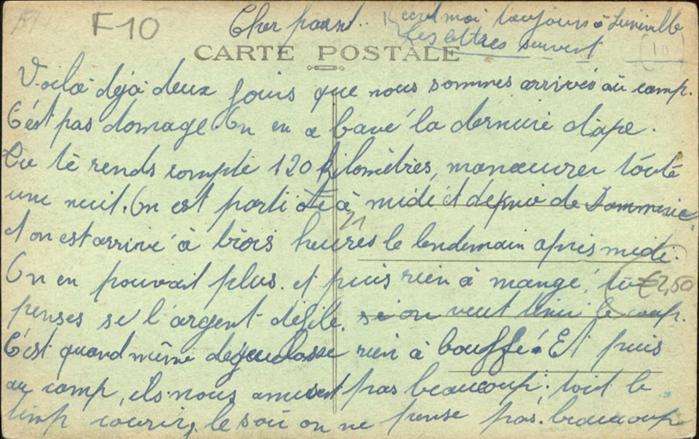 F10
Cher parent.. Ecrit moi toujours à Luneville
les lettres suivent
CARTE POSTALE
Voila déja deux jours que nous sommes arrivés au camp.
C'est pas domage. On en a bavé la derniere étape.
Tu te rends compte 120 kilomètres, manœuvrer toute
une nuit. On est parti à midi et depuis de
et on est arrivé à trois heures le lendemain après midi.
On en pouvait plus. et puis rien à mangé, tu
€2,50
penses se l'argent défile. si on veut tenir le coup.
C'est quand même degeulasse rien à bouffé. Et puis
au camp, ils nous amusent pas beaucoup. tout le
temp courir, le soir on ne pense pas beaucoup